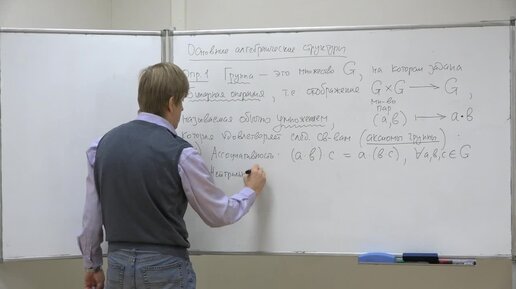 Основные алгебраические структуры
Опр.1 Группа – это множество G, на котором задана
бинарная операция, т.е отображение G × G → G,
мн-во
пар
называемая обычно умножением, (a, b) ↦ a·b
которая удовлетворяет след. св-вам (аксиомы группы)
Ассоциативность: (a b) c = a (b c), ∀a,b,c ∈ G
Нейтраль